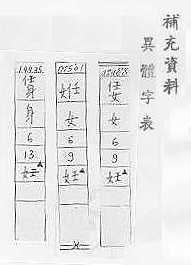 補充資料
異體字表
女
6
9
妊▲
姙
女
6
9
妊▲
14935
身
6
13
妊▲